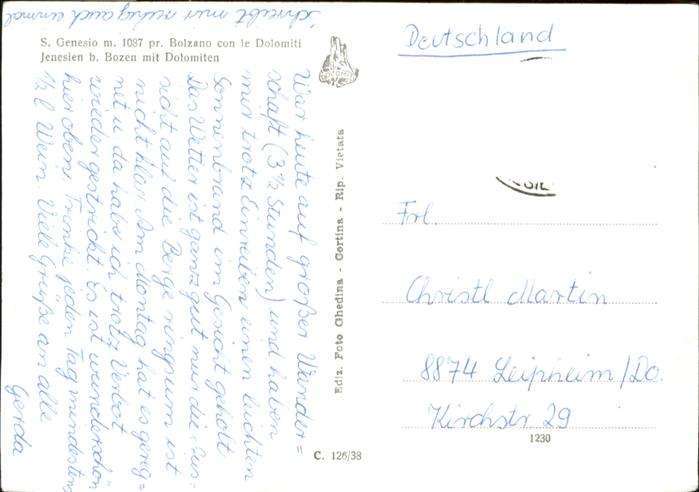 schreibt mir ruhig auch einmal
S. Genesio m. 1087 pr. Bolzano con le Dolomiti
Jenesien b. Bozen mit Dolomiten
War heute auf großer Wander=
schaft (3 ½ Stunden) und haben
mir trotz Einreiben einen leichten
Sonnenbrand im Gesicht geholt
Das Wetter ist ganz gut nur die Aus=
sicht auf die Berge ringsum ist
nicht klar. Am Montag hat es gereg=
net u. da habe ich trotz Verbot
wieder gestrickt. Es ist wunderschön
hier oben. Trinke jeden Tag mindestens
½ l Wein. Viele Grüße an alle
Gerda
Ediz. Foto Ghedina - Cortina - Rip. Vietata
C. 126/38
Deutschland
Frl.
Christl Martin
8874 Leipheim/Do.
Kirchstr 29
1230